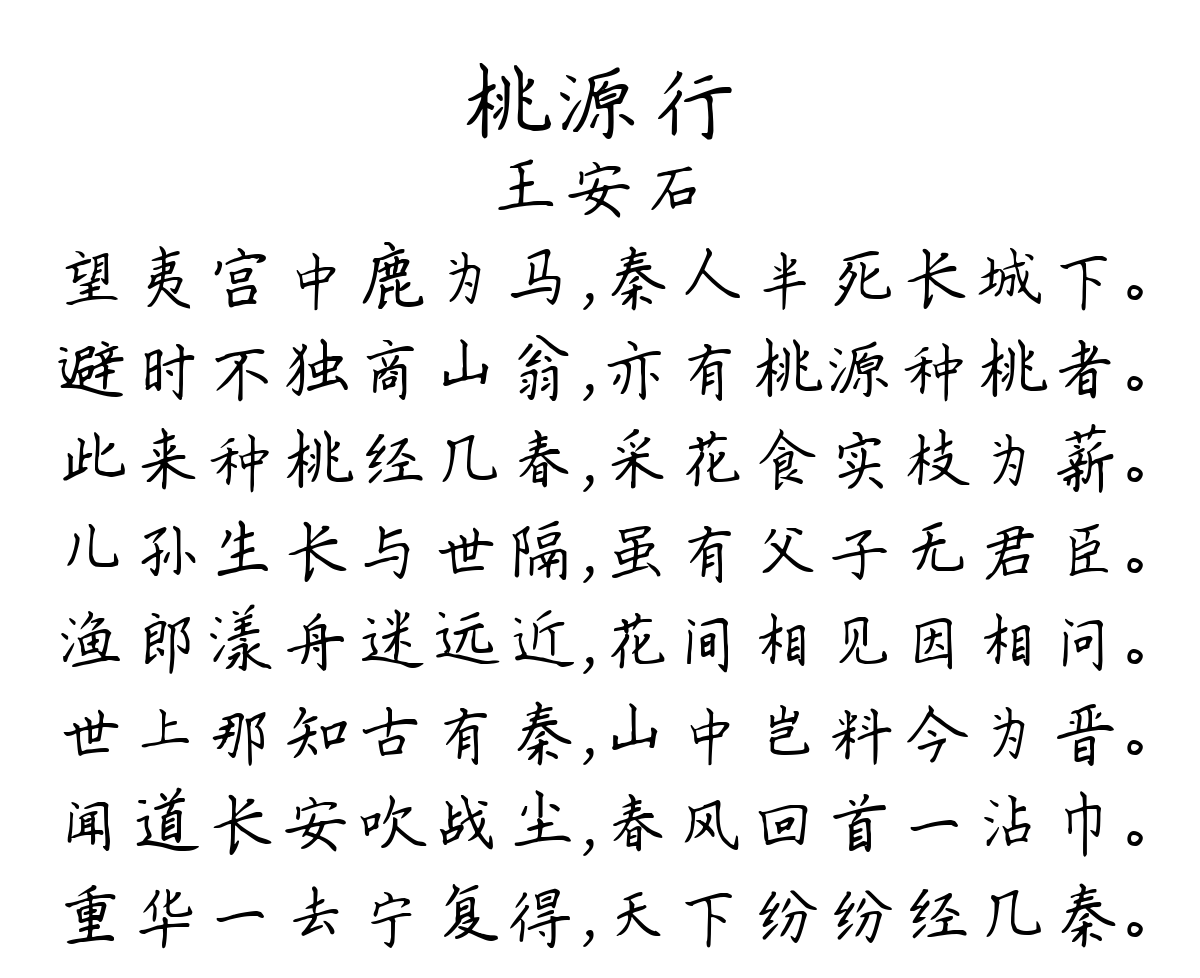 桃源行
王安石
望夷宫中鹿为马,秦人半死长城下。
避时不独商山翁,亦有桃源种桃者。
此来种桃经几春,采花食实枝为薪。
儿孙生长与世隔,虽有父子无君臣。
渔郎漾舟迷远近,花间相见因相问。
世上那知古有秦,山中岂料今为晋。
闻道长安吹战尘,春风回首一沾巾。
重华一去宁复得,天下纷纷经几秦。